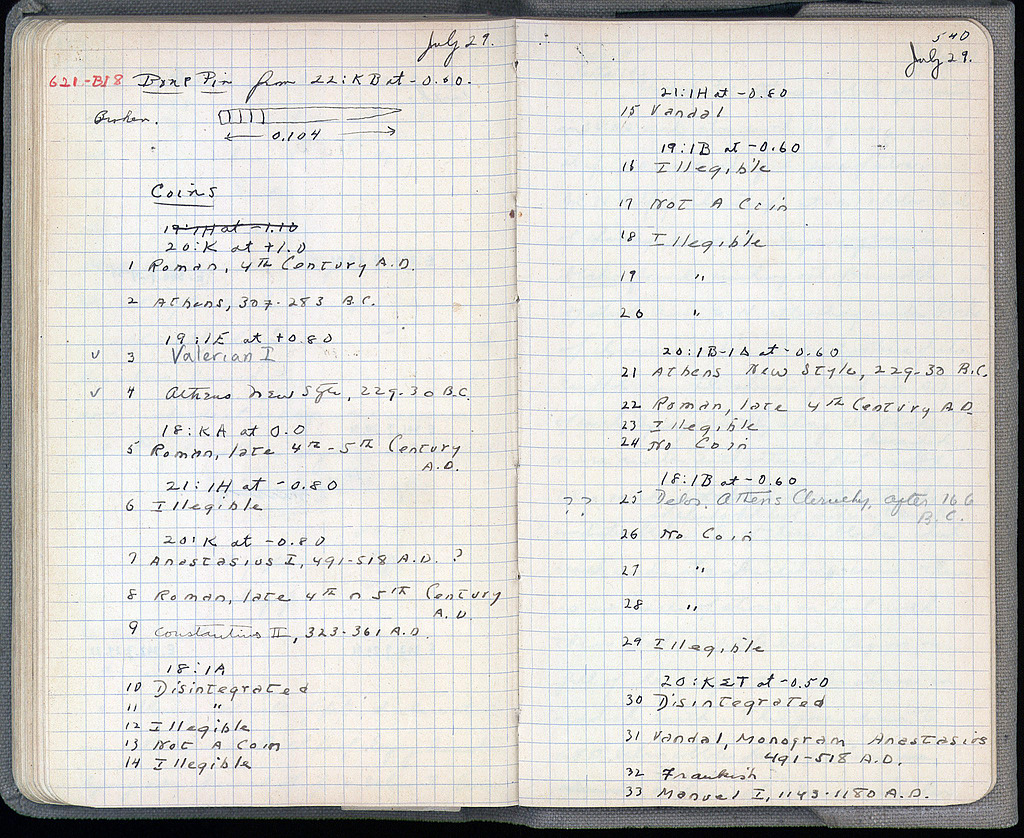 July 29.
621-B18 Bone Pin from 22:KB at -0.60.
Broken.
0.104
Coins
19:1H at -1.10
20:K at +1.0
1 Roman, 4th Century A.D.
2 Athens, 307-283 B.C.
19:1E at +0.80
✓ 3 Valerian I
✓ 4 Athens New Style, 229-30 B.C.
18:KA at 0.0
5 Roman, late 4th-5th Century
A.D.
21:1H at -0.80
6 Illegible
20:K at -0.80
7 Anastasius I, 491-518 A.D. ?
8 Roman, late 4th or 5th Century
A.D.
9 Constantius II, 323-361 A.D.
18:1A
10 Disintegrated
11 "
12 Illegible
13 Not A Coin
14 Illegible
540
July 29.
21:1H at -0.80
15 Vandal
19:1B at -0.60
16 Illegible
17 Not A Coin
18 Illegible
19 "
20 "
20:1B-1Δ at -0.60
21 Athens New Style, 229-30 B.C.
22 Roman, late 4th Century A.D.
23 Illegible
24 No Coin
18:1B at -0.60
?? 25 Delos, Athens Cleruchy, after 166
B.C.
26 No Coin
27 "
28 "
29 Illegible
20:KΣT at -0.50
30 Disintegrated
31 Vandal, Monogram Anastasius
491-518 A.D.
32 Frankish
33 Manuel I, 1143-1180 A.D.